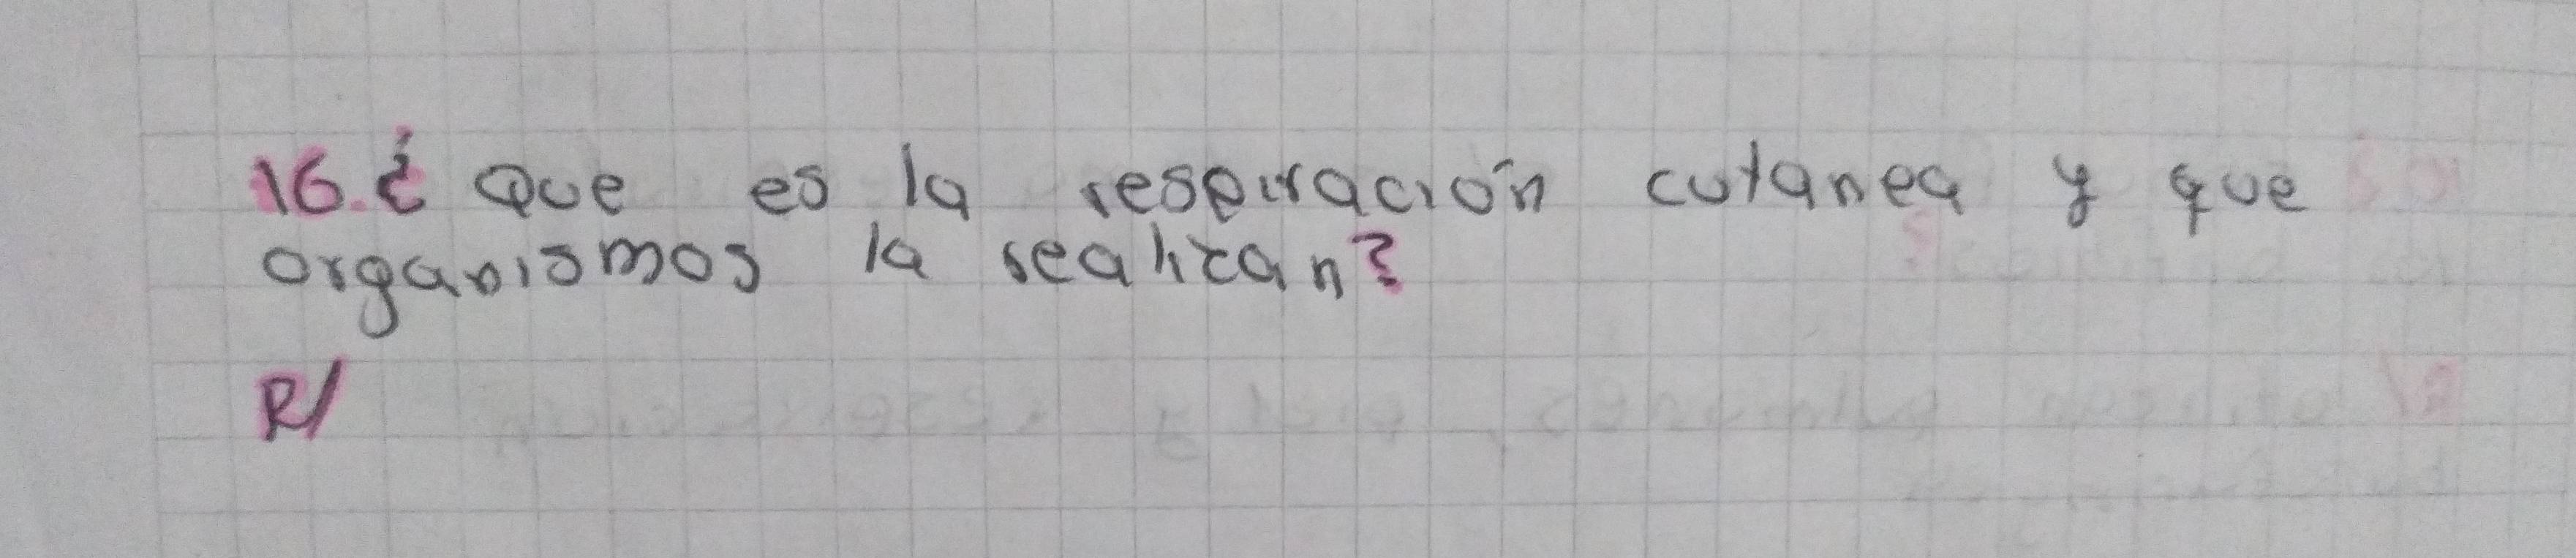 16. ¿ Que es la respiración cutanea y que
organismos la realizan?
R/